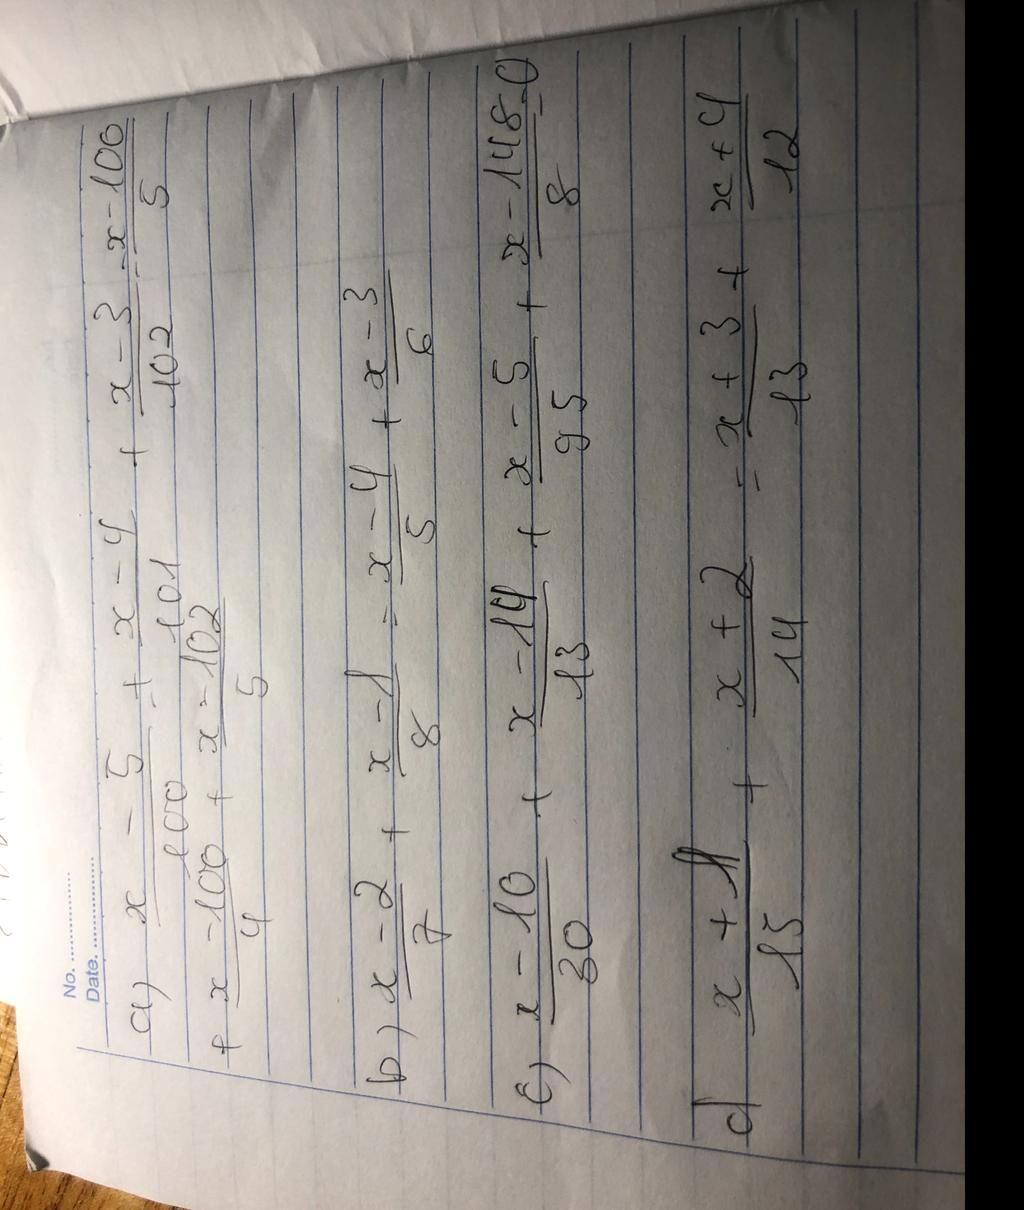 No. ...............
Date. ...................
a) (x - 5)/100 + (x - 4)/101 + (x - 3)/102 = (x - 100)/5
+ (x - 100)/4 + (x - 102)/5
b) (x - 2)/7 + (x - 1)/8 = (x - 4)/5 + (x - 3)/6
c) (x - 10)/30 + (x - 14)/13 + (x - 5)/95 + (x - 148)/8 = 0
d (x + 1)/15 + (x + 2)/14 = (x + 3)/13 + (x + 4)/12